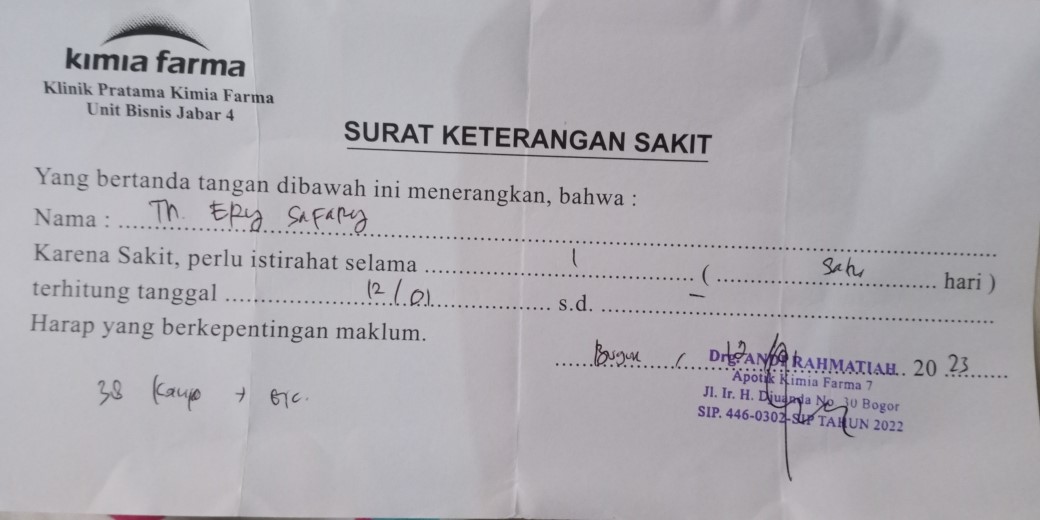 kimia farma
Klinik Pratama Kimia Farma
Unit Bisnis Jabar 4
SURAT KETERANGAN SAKIT
Yang bertanda tangan dibawah ini menerangkan, bahwa :
Nama : Tn. Epy Safapy
Karena Sakit, perlu istirahat selama 1 ( Satu hari )
terhitung tanggal 12/01 s.d. –
Harap yang berkepentingan maklum.
12/01 2023
Drg. ANDI RAHMATIAH
Apotik Kimia Farma 7
Jl. Ir. H. Djuanda No. 30 Bogor
SIP. 446-0302-SIP TAHUN 2022